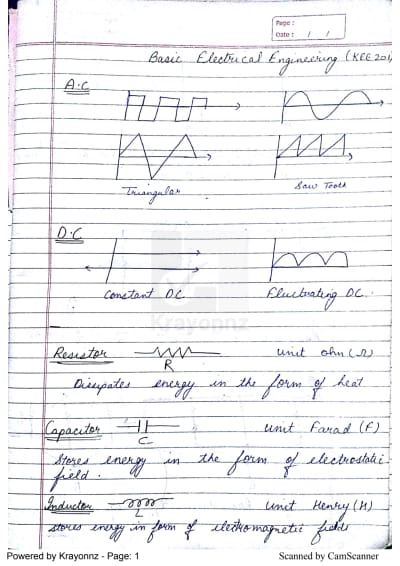 Page :
Date : / /
Basic Electrical Engineering (KEE 201)
A.C
Triangular
Saw Tooth
D.C
Constant DC
Fluctuating DC.
Krayonnz
Resistor R unit ohm (Ω)
Dissipates energy in the form of heat
Capacitor C unit Farad (F)
Stores energy in the form of electrostatic
field.
Inductor L unit Henry (H)
stores energy in form of electromagnetic fields
Powered by Krayonnz - Page: 1
Scanned by CamScanner